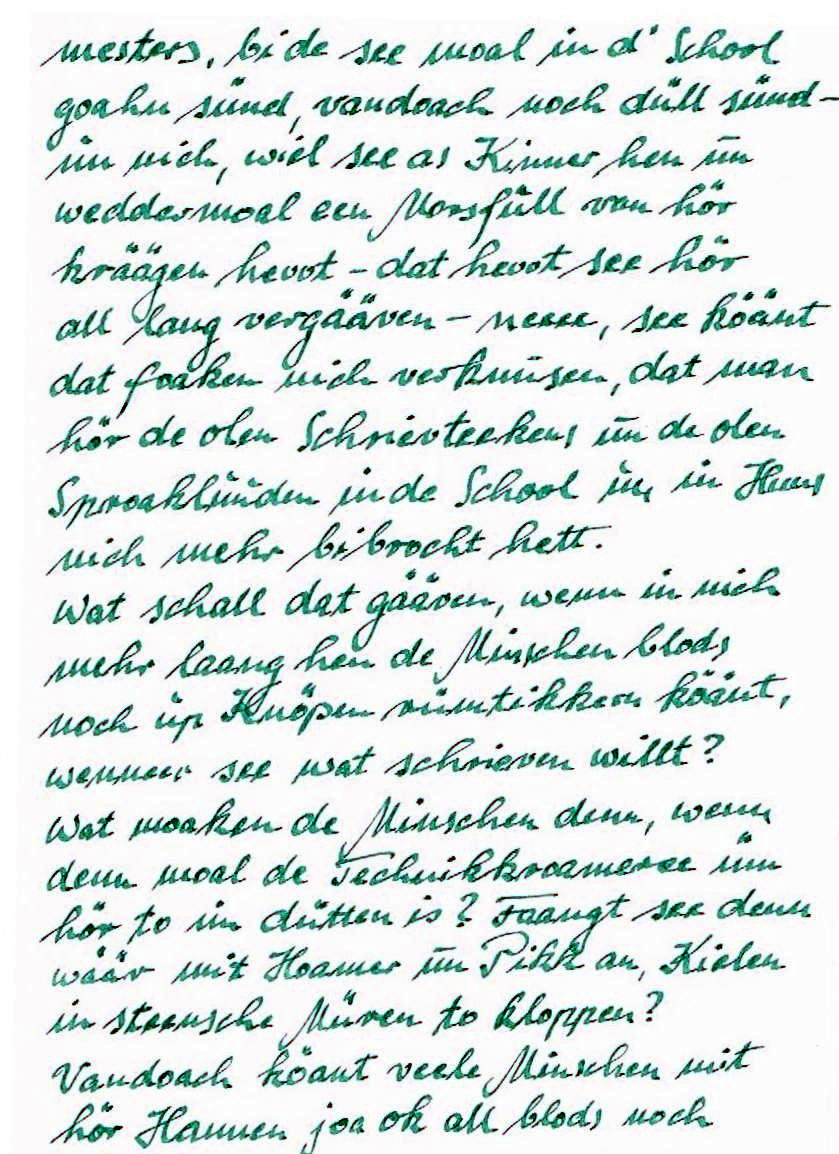 mesters, bi de see moal in d' School
goahn sünd, vandoach noch düll sünd -
ün nich, wiel see as Kinner hen ün
weddermoal een Morsfüll van hör
kräägen hevvt - dat hevvt see hör
all lang vergääven - neeee, see köänt
dat foaken nich verknüsen, dat man
hör de olen Schrievteekens ün de olen
Sproaklüüden in de School ün in Huus
nich mehr bibrocht hett.
Wat schall dat gääven, wenn in nich
mehr laang hen de Minschen blods
noch üp Knöpen rümtikkern köänt,
wenneer see wat schrieven willt?
Wat moaken de Minschen denn, wenn
denn moal de Technikkroameree üm
hör to in dütten is? Faangt see denn
wäär mit Hoamer ün Pikk an, Kielen
in steensche Müren to kloppen?
Vandoach köänt veele Minschen mit
hör Hannen joa ok all blods noch